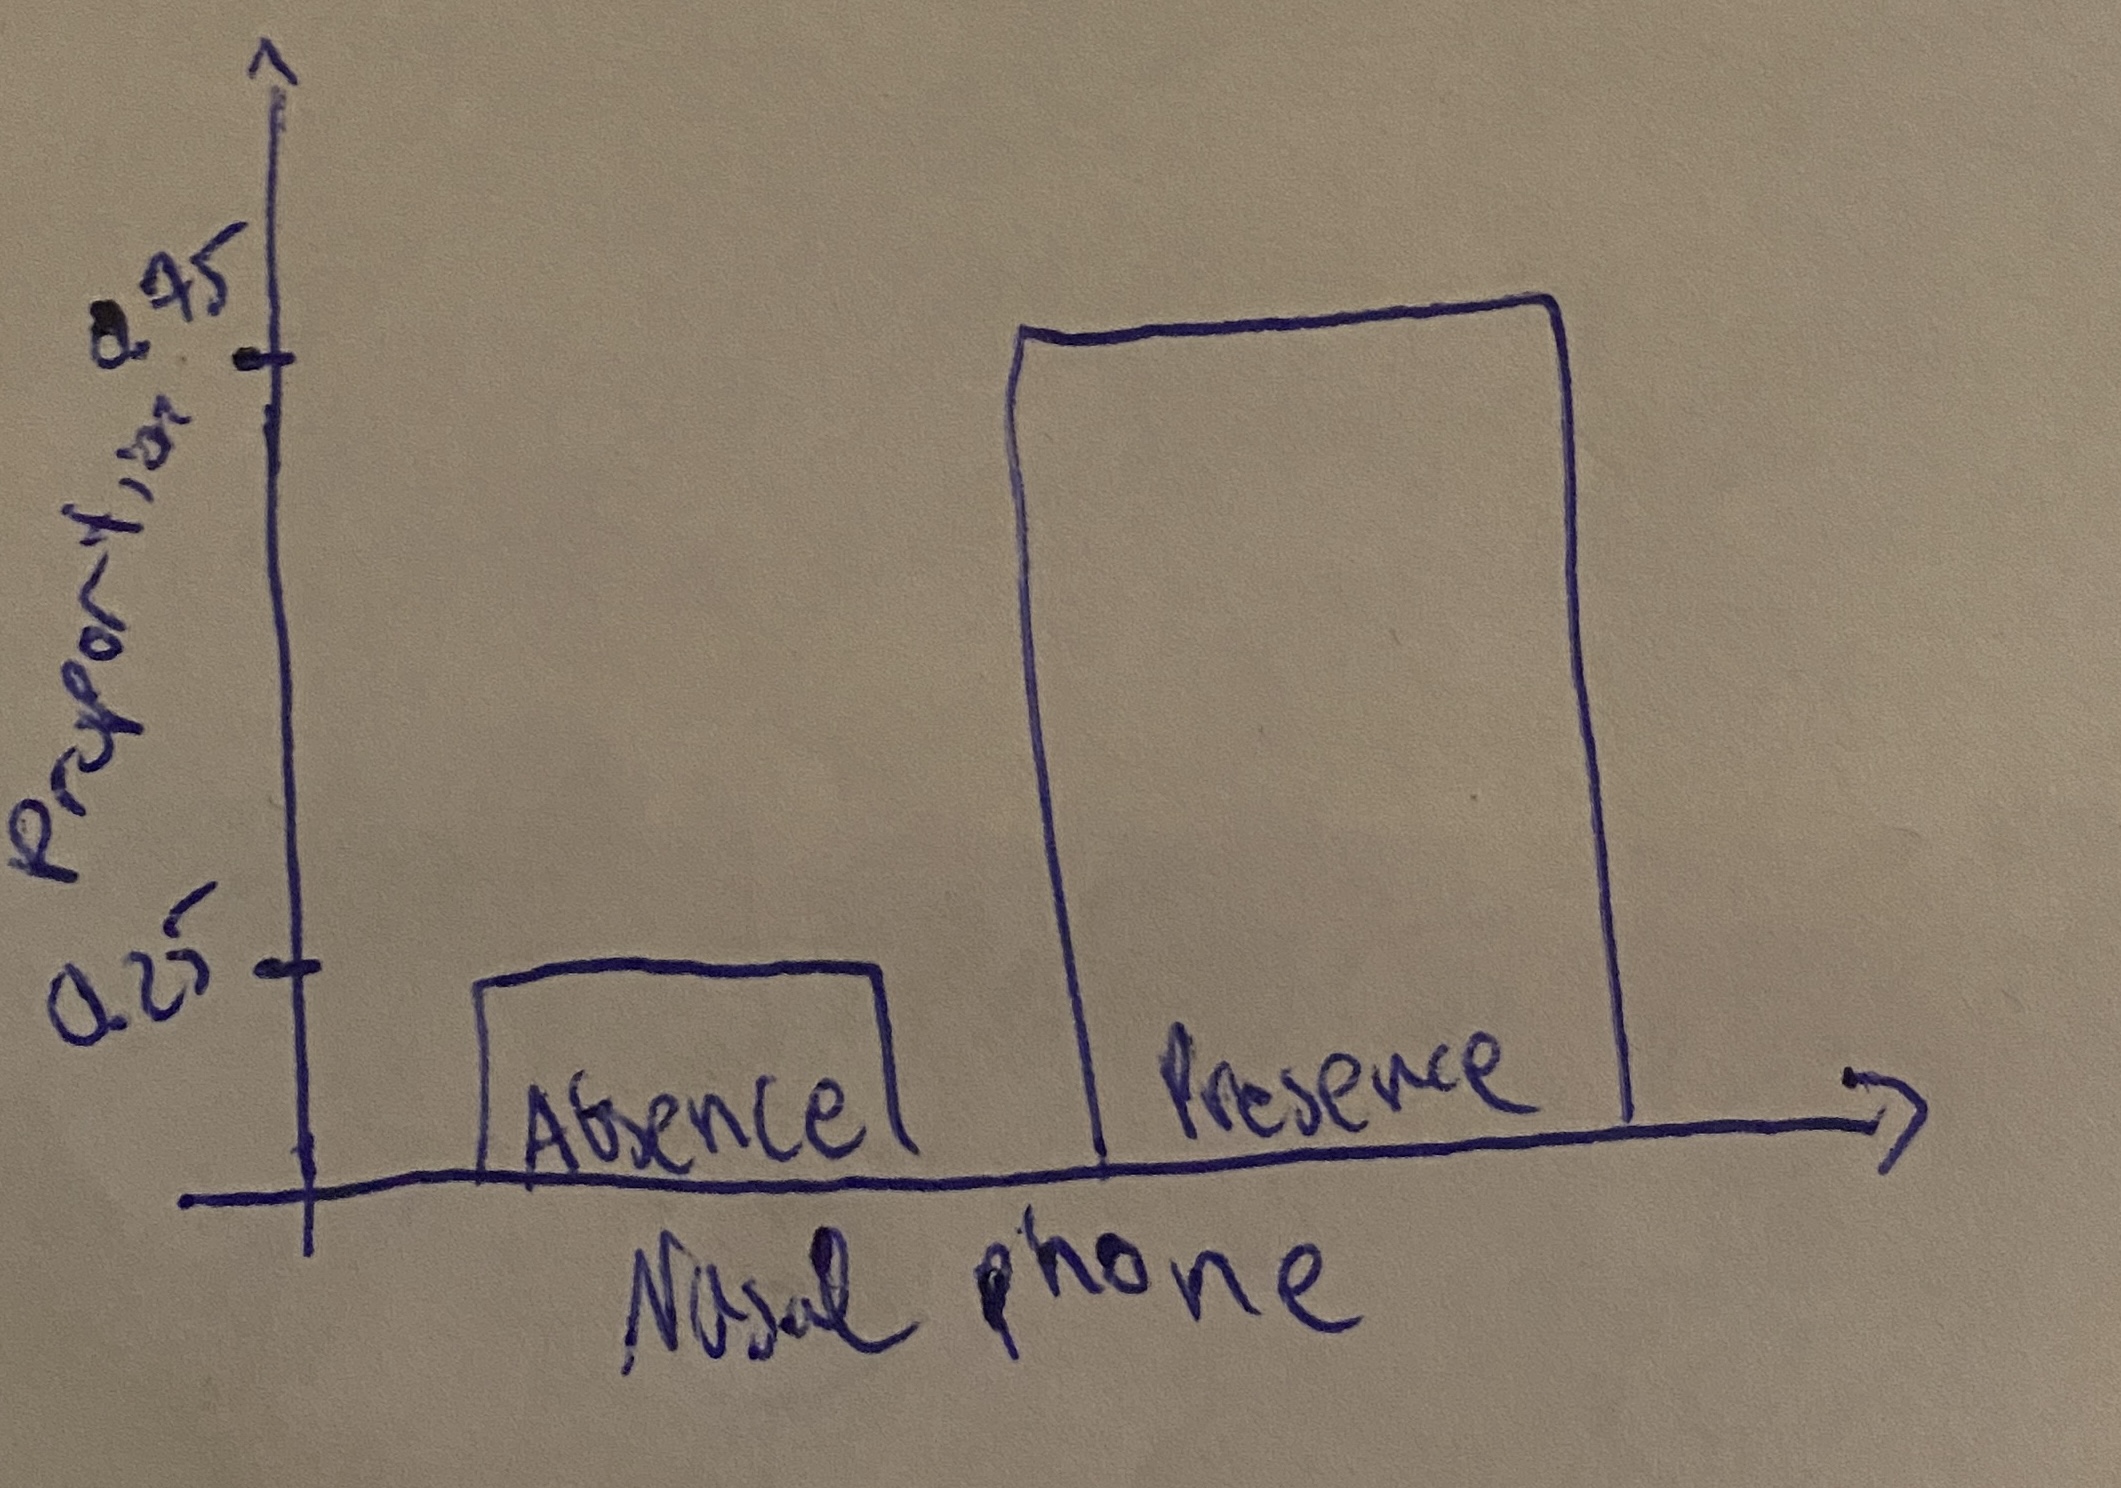 0.75
Proportion
0.25
Absence
Presence
Nasal phone